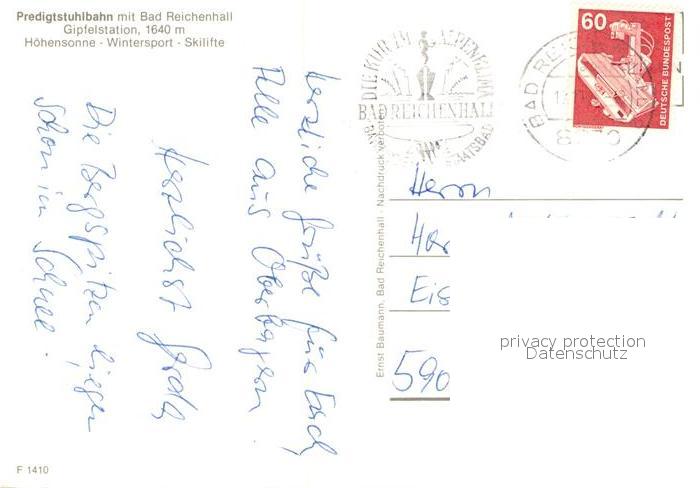 Predigtstuhlbahn mit Bad Reichenhall
Gipfelstation, 1640 m
Höhensonne - Wintersport - Skilifte
60
DEUTSCHE BUNDESPOST
DIE KUR IM ALPENKLIMA
BAD REICHENHALL
STAATSBAD
BAD REI
Herzliche Grüße für Euch
Alle aus Oberbayern.
Herzlichst
Die Bergspitzen liegen
schon im Schnee.
Ernst Baumann, Bad Reichenhall - Nachdruck verboten
Herrn
Har
Eis
590
privacy protection
Datenschutz
F 1410